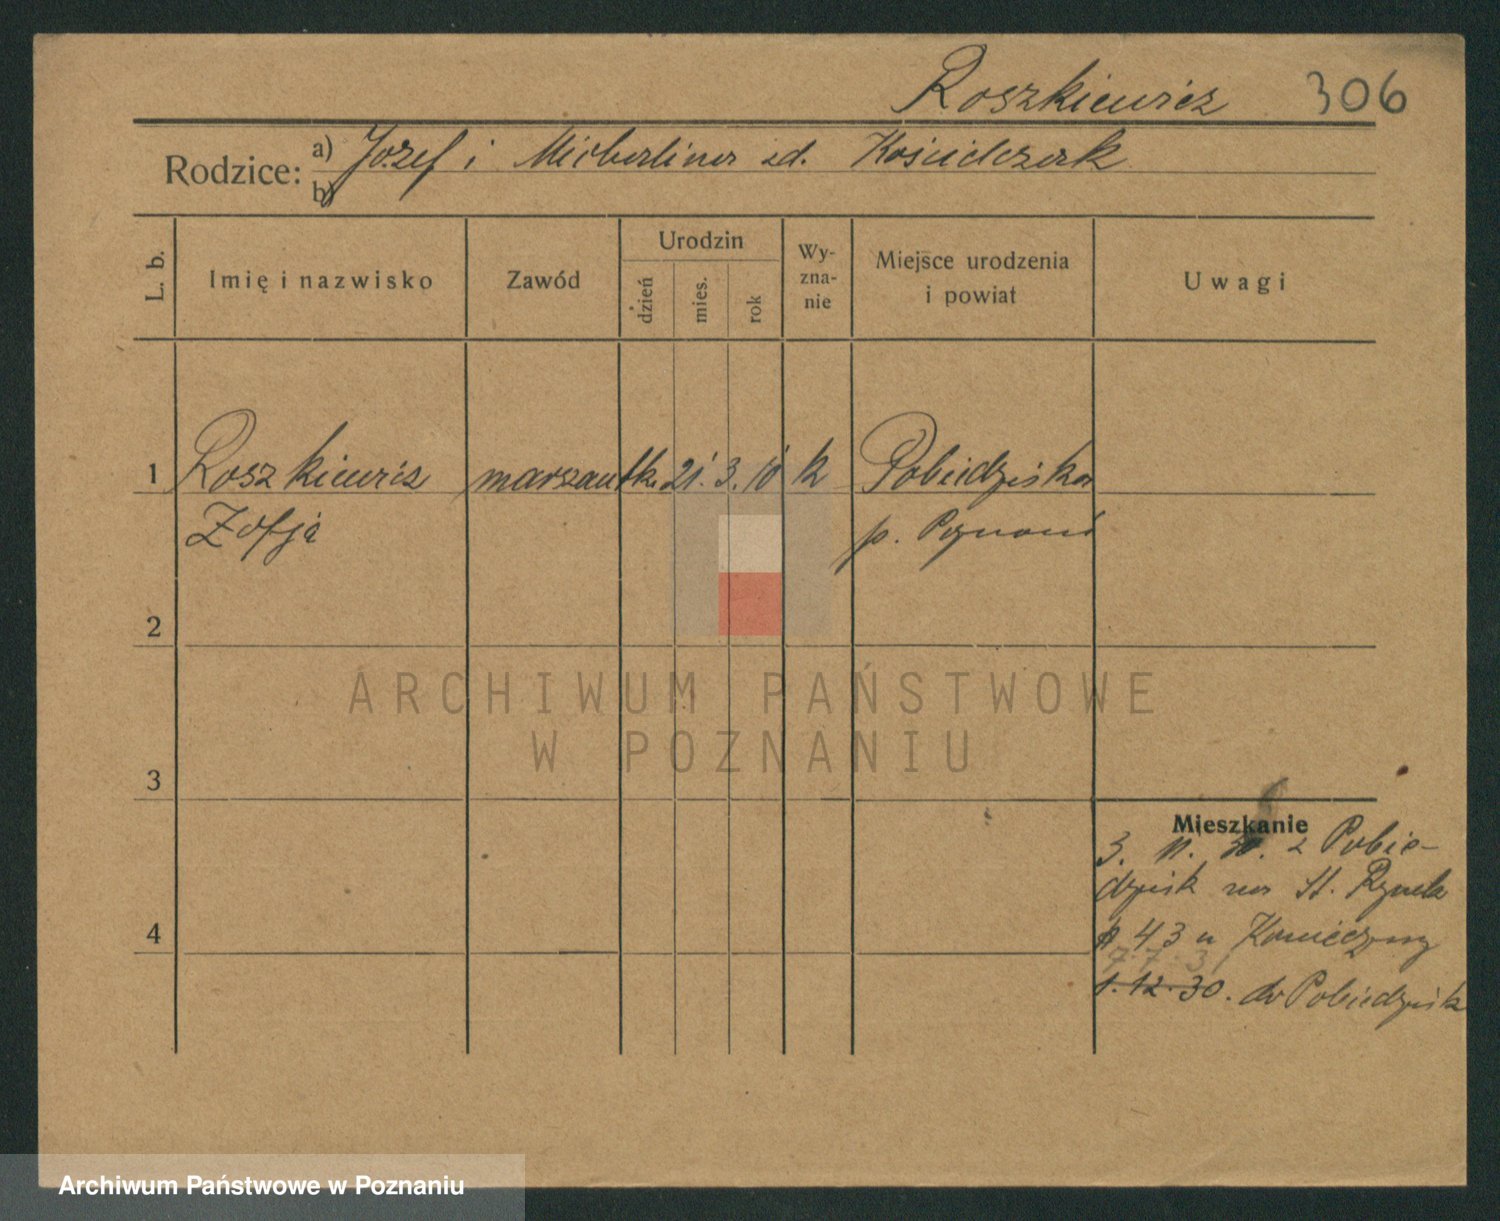 Roszkiewicz 306
Rodzice: a) Józef i Michalina zd. Kościelczak
b)
L. b.
Imię i nazwisko
Zawód
Urodzin
dzień
mies.
rok
Wy-
zna-
nie
Miejsce urodzenia
i powiat
Uwagi
1 Roszkiewicz marszantk. 21. 3. 10 k Pobiedziska
Zofja p. Poznań
2
ARCHIWUM PAŃSTWOWE
W POZNANIU
3
Mieszkanie
3. 11. 30. z Pobie-
dzisk na St. Rynek
4
43 u Konieczny
1.12.30. do Pobiedzisk
Archiwum Państwowe w Poznaniu